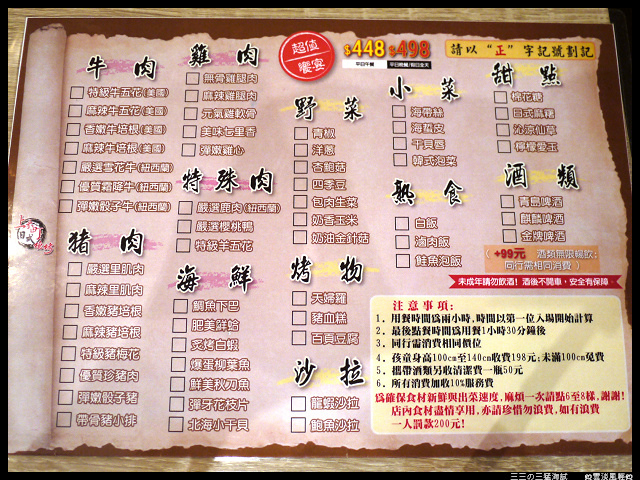 超值
饗宴
$448
平日午餐
$498
平日晚餐/假日全天
請以“正”字記號劃記
牛肉
特級牛五花(美國)
麻辣牛五花(美國)
香嫩牛培根(美國)
麻辣牛培根(美國)
嚴選雪花牛(紐西蘭)
優質霜降牛(紐西蘭)
彈嫩骰子牛(紐西蘭)
豬肉
嚴選里肌肉
麻辣里肌肉
香嫩豬培根
麻辣豬培根
特級豬梅花
優質珍豬肉
彈嫩骰子豬
帶骨豬小排
雞肉
無骨雞腿肉
麻辣雞腿肉
元氣雞軟骨
美味七里香
彈嫩雞心
特殊肉
嚴選鹿肉(紐西蘭)
嚴選櫻桃鴨
特級羊五花
海鮮
鯛魚下巴
肥美鮮蛤
炙烤白蝦
爆蛋柳葉魚
鮮美秋刀魚
彈牙花枝片
北海小干貝
野菜
青椒
洋蔥
杏鮑菇
四季豆
包肉生菜
奶香玉米
奶油金針菇
烤物
天婦羅
豬血糕
百頁豆腐
沙拉
龍蝦沙拉
鮑魚沙拉
小菜
海帶絲
海蜇皮
干貝唇
韓式泡菜
熟食
白飯
滷肉飯
鮭魚泡飯
甜點
棉花糖
日式麻糬
沁涼仙草
檸檬愛玉
酒類
青島啤酒
麒麟啤酒
金牌啤酒
(+99元 酒類無限暢飲;
同行需相同消費)
未成年請勿飲酒!酒後不開車,安全有保障
注意事項:
1. 用餐時間為兩小時,時間以第一位入場開始計算
2. 最後點餐時間為用餐1小時30分鐘後
3. 同行需消費相同價位
4. 孩童身高100cm至140cm收費198元;未滿100cm免費
5. 攜帶酒類另收清潔費一瓶50元
6. 所有消費加收10%服務費
為確保食材新鮮與出菜速度,麻煩一次請點6至8樣,謝謝!
店內食材盡情享用,亦請珍惜勿浪費,如有浪費
一人罰款200元!
三三の三猛海賊